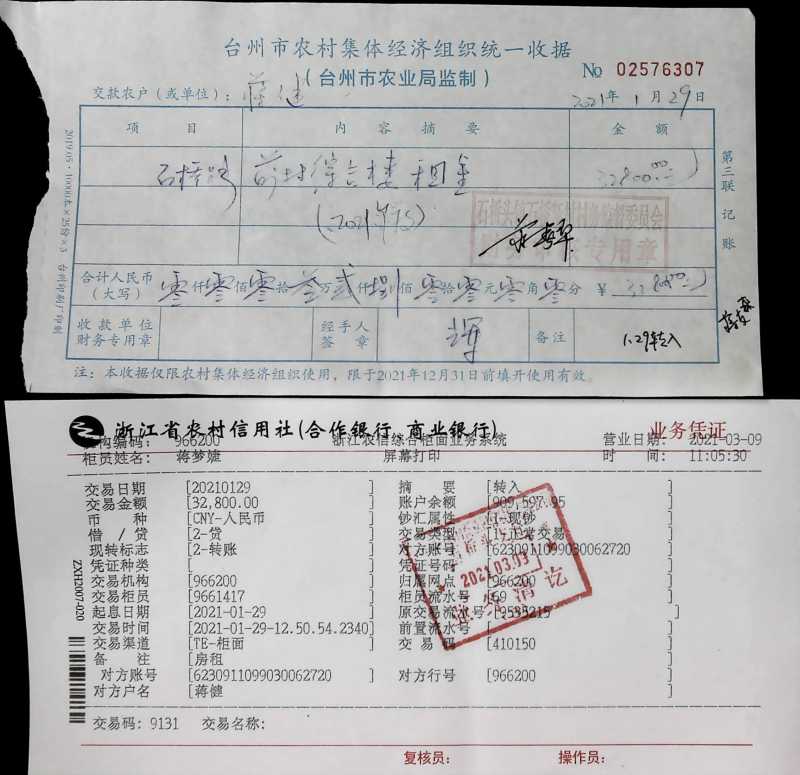 台州市农村集体经济组织统一收据
(台州市农业局监制)
No 02576307
交款农户(或单位): 蒋健
2021年 1月29日
项 目 内 容 摘 要 金 额
前村综合楼 租金 32800.00
(2021年
合计人民币 零仟零佰零拾叁万贰仟捌佰零拾零元零角零分 ¥ 32800.00
(大写)
收款单位 经手人 备注 1.29转入
财务专用章 签 章
第三联 记账
2019.05·10000本×25份×3 台州印刷厂印制
注:本收据仅限农村集体经济组织使用,限于2021年12月31日前填开使用有效。
浙江省农村信用社(合作银行 商业银行) 业务凭证
机构编码: 966200 浙江农信综合柜面业务系统 营业日期: 2021-03-09
柜员姓名: 蒋梦婕 屏幕打印 时 间: 11:05:30
交易日期 [20210129 ] 摘 要 [转入 ]
交易金额 [32,800.00 ] 账户余额 [909,597.95 ]
币 种 [CNY-人民币 ] 钞汇属性 [1-现钞 ]
借 / 贷 [2-贷 ] 交易类型 [1-正常交易 ]
现转标志 [2-转账 ] 对方账号 [6230911099030062720 ]
凭证种类 [ ] 凭证号码 [ ]
交易机构 [966200 ] 归属网点 [966200 ]
交易柜员 [9661417 ] 柜员流水号 [69 ]
起息日期 [2021-01-29 ] 原交易流水号 [9535215 ]
交易时间 [2021-01-29-12.50.54.2340] 前置流水号 [ ]
交易渠道 [TE-柜面 ] 交 易 码 [410150 ]
备 注 [房租 ]
对方账号 [6230911099030062720 ] 对方行号 [966200 ]
对方户名 [蒋健 ]
2021.03.03
ZXH2007-020
交易码: 9131 交易名称:
复核员: 操作员: